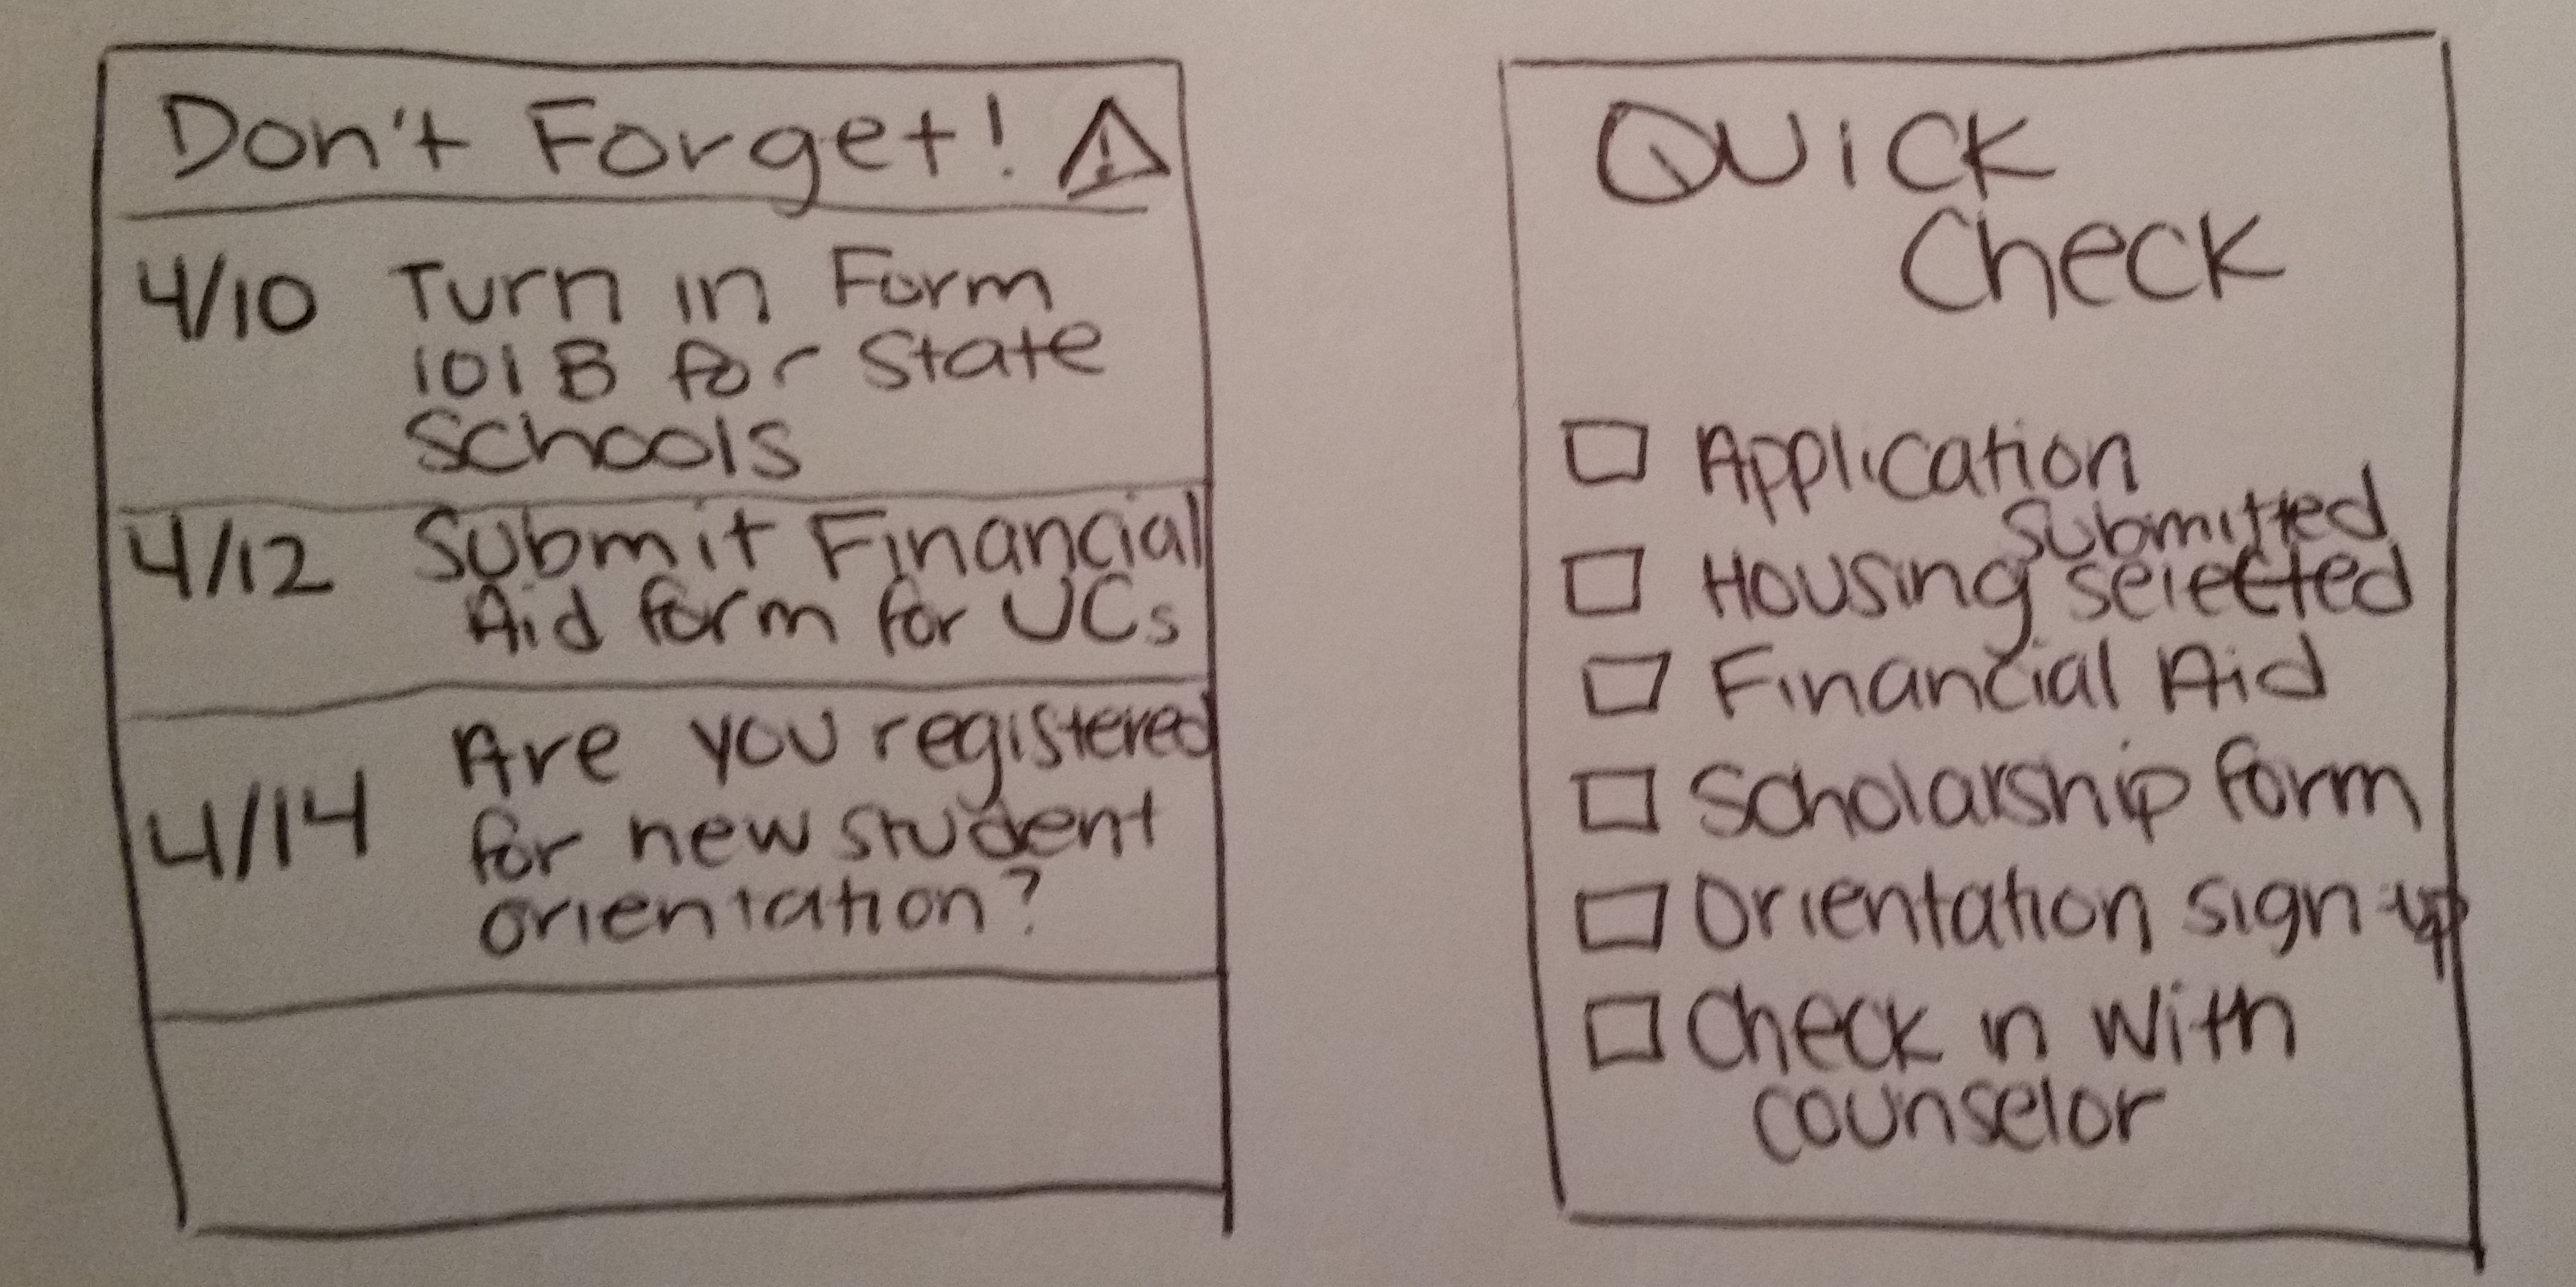 Don't Forget!
4/10 Turn in Form
101B for State
Schools
4/12 Submit Financial
Aid form for UCs
4/14 Are you registered
for new student
orientation?
Quick
Check
Application
Submitted
Housing selected
Financial Aid
Scholarship form
Orientation sign-up
Check in with
counselor